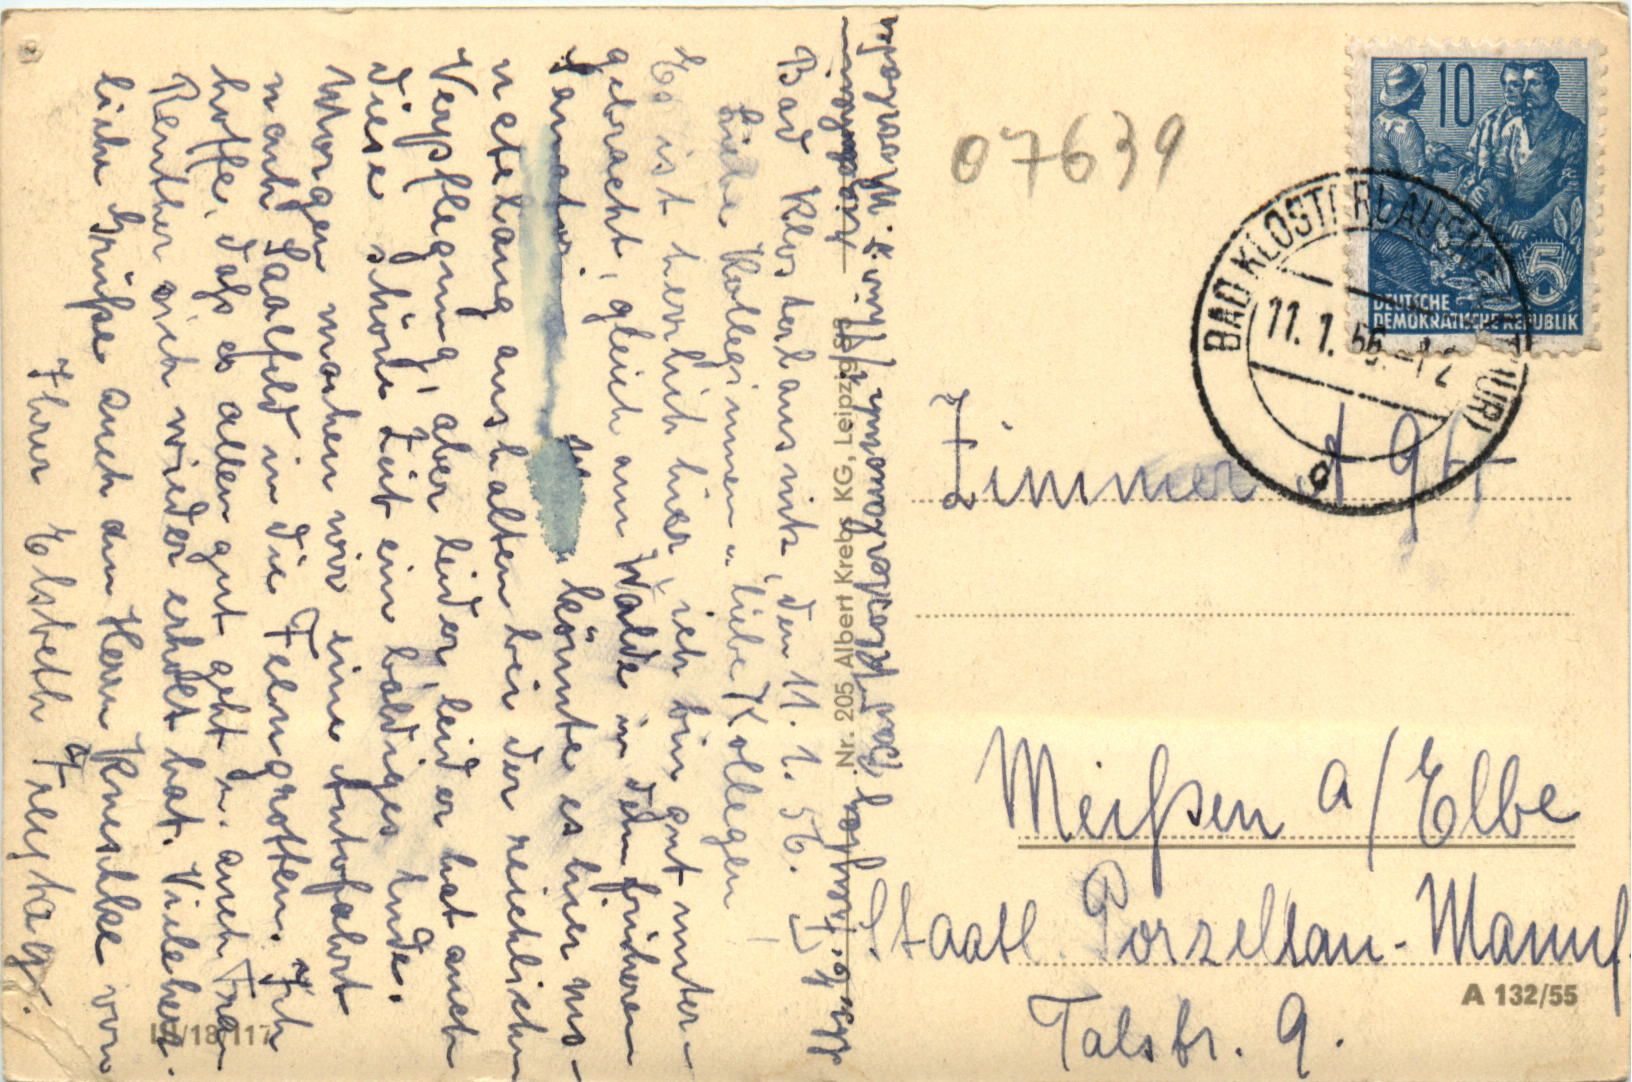 Bad Klosterlausnitz, den 11. 1. 56.
Liebe Kolleginnen u. liebe Kollegen
Es ist herrlich hier, ich bin gut unter-
gebracht, gleich am Walde in dem früheren
Sanatorium könnte es hier uns-
etelang aushalten bei der reichlichen
Verpflegung, aber leider, leider hat auch
diese schöne Zeit ein baldiges Ende.
Morgen machen wir eine Autofahrt
nach Saalfeld in die Feengrotten. Ich
hoffe, daß es allen gut geht u. auch Frau
sich wieder erholt hat. Viele herz-
liche Grüße auch an Herrn von
Ihrer Elsbeth Freytag.
Bad Klosterlausnitz/Thür.
Nr. 205 Albert Krebs KG, Leipzig
III/18/117
07639
10
5
DEUTSCHE
DEMOKRATISCHE REPUBLIK
BAD KLOSTERLAUSNITZ (THÜR)
11. 1. 56. -12
Zimmer
Meißen a/Elbe
Staatl. Porzellan-Manuf.
A 132/55
Talstr. 9.